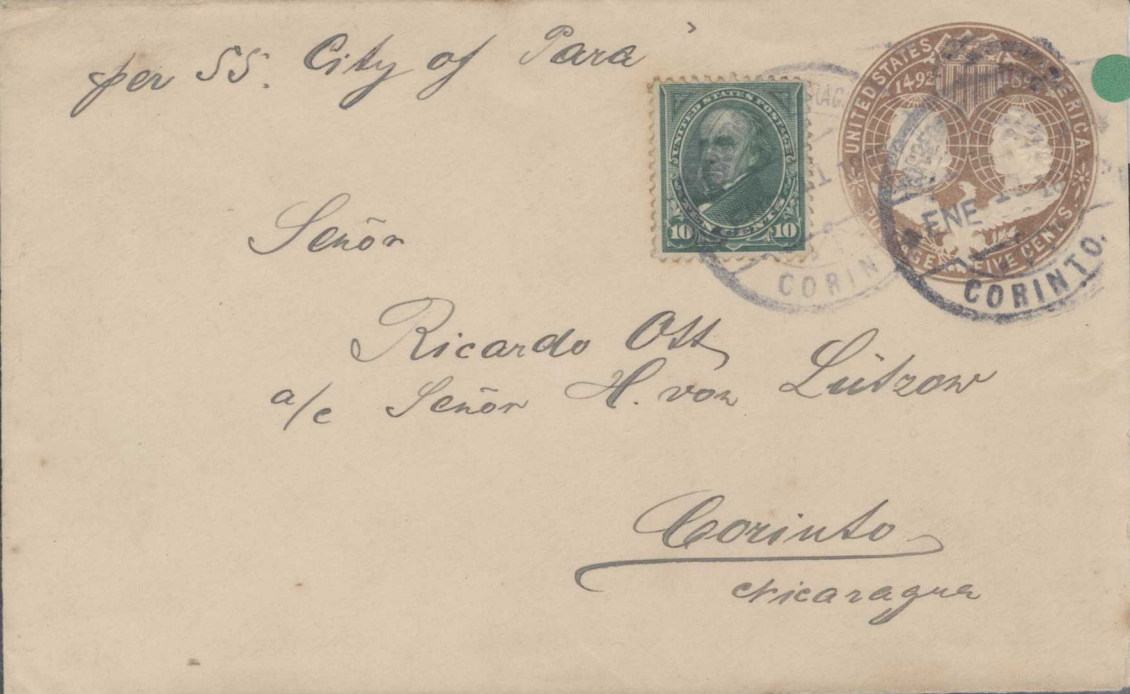 per SS. City of Para
UNITED STATES POSTAGE
TEN CENTS
10 10
UNITED STATES
1492
FIVE CENTS.
CORINTO.
ENE
Señor
Ricardo Ott
a/c Señor H. von Lützow
Corinto
Nicaragua